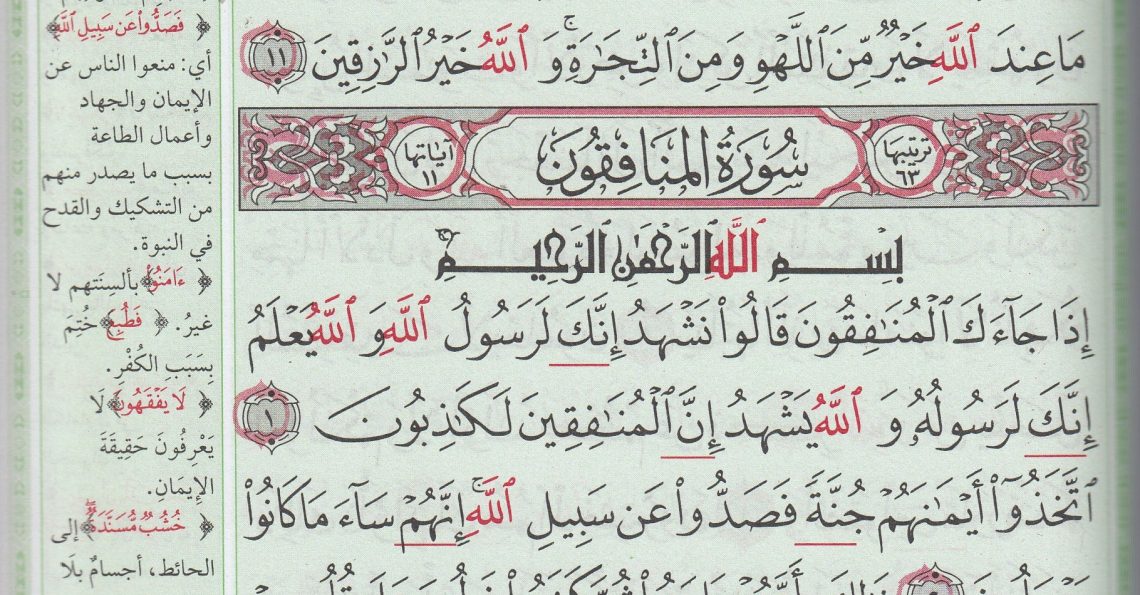 مَا عِندَ ٱللَّهِ خَيْرٌ مِّنَ ٱللَّهْوِ وَمِنَ ٱلتِّجَٰرَةِۚ وَٱللَّهُ خَيْرُ ٱلرَّٰزِقِينَ ١١
ترتيبها ٦٣ سُورَةُ المنَافِقُون آياتها ١١
بِسْمِ ٱللَّهِ ٱلرَّحْمَٰنِ ٱلرَّحِيمِ
إِذَا جَآءَكَ ٱلْمُنَٰفِقُونَ قَالُوا۟ نَشْهَدُ إِنَّكَ لَرَسُولُ ٱللَّهِ وَٱللَّهُ يَعْلَمُ
إِنَّكَ لَرَسُولُهُۥ وَٱللَّهُ يَشْهَدُ إِنَّ ٱلْمُنَٰفِقِينَ لَكَٰذِبُونَ ١
ٱتَّخَذُوٓا۟ أَيْمَٰنَهُمْ جُنَّةً فَصَدُّوا۟ عَن سَبِيلِ ٱللَّهِۚ إِنَّهُمْ سَآءَ مَا كَانُوا۟
﴿فَصَدُّوا۟ عَن سَبِيلِ ٱللَّهِ﴾
أي: منعوا الناس عن
الإيمان والجهاد
وأعمال الطاعة
بسبب ما يصدر منهم
من التشكيك والقدح
في النبوة.
﴿ءَامَنُوا۟﴾ بألسِنَتهم لا
غيرُ. ﴿فَطُبِعَ﴾ خُتِمَ
بِسَبَبِ الكُفْرِ.
﴿لَا يَفْقَهُونَ﴾ لَا
يَعْرِفُونَ حَقِيقَةَ
الإِيمَانِ.
﴿خُشُبٌ مُّسَنَّدَةٌ﴾ إلى
الحائط، أجسامٌ بلَا